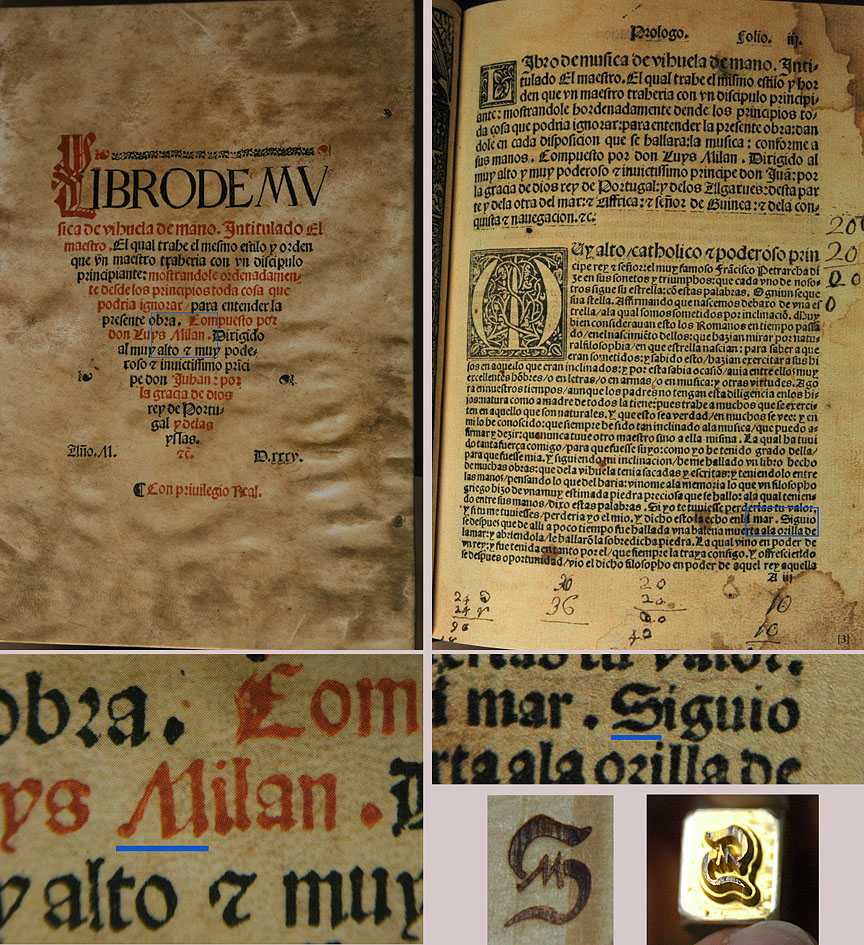 LIBRO DE MV
sica de vihuela de mano. Intitulado El
maestro. El qual trahe el mesmo estilo y orden
que vn maestro traheria con vn discipulo
principiante: mostrandole ordenadamen-
te desde los principios toda cosa que
podria ignorar / para entender la
presente obra. Compuesto por
don Luys Milan. Dirigido
al muy alto & muy pode-
roso & inuictissimo princi
pe don Juhan: por
la gracia de dios
rey de Portu-
gal y delas
yslas.
&c.
Año. M. D.xxxv.
Con privilegio Real.
Prologo. Folio. iij.
Libro de musica de vihuela de mano. Inti-
tulado El maestro. El qual trahe el mismo estilo y hor
den que vn maestro traheria con vn discipulo principi-
ante: mostrandole hordenadamente dende los principios to-
da cosa que podria ignorar: para entender la presente obra: dan
dole en cada disposicion que se hallara: la musica: conforme a
sus manos. Compuesto por don Luys Milan. Dirigido al
muy alto y muy poderoso & inuictissimo principe don Juã: por
la gracia de dios rey de Portugal: y delos Algarues: desta par
te y dela otra del mar: & Affrica: & señor de Guinea: & dela con-
quista & nauegacion. &c:
MUy alto / catholico & poderoso prin
cipe rey & señor: el muy famoso Frãcisco Petrarcha di
ze en sus sonetos y triumphos: que cada vno de noso-
tros sigue su estrella: cõ estas palabras. Ogniun seque
sua stella. Affirmando que nascemos debaxo de vna es
trella / ala qual somos sometidos por inclinaciõ. Muy
bien considerauan esto los Romanos en tiempo passa
do / enel nascimiẽto dellos: que hazian mirar por natu-
ral filosophia / en que estrella nascian: para saber a que
eran sometidos: y sabido esto / hazian exercitar a sus hi
jos en aquello que eran inclinados: y por esta sabia ocasiõ / auia entre ellos muy
excellentes hõbres / o en letras / o en armas / o en musica: y otras virtudes. Ago
ra en nuestros tiempos / aunque los padres no tengan esta diligencia enlos hi-
jos: natura como a madre de todos la tiene: pues trahe a muchos que se exerci-
ten en aquello que son naturales. Y que esto sea verdad / en muchos se vee: y en
mi lo he conoscido: que siempre he sido tan inclinado ala musica / que puedo a-
firmar y dezir: que nunca tuue otro maestro sino a ella misma. La qual ha tuui
do tanta fuerça comigo / para que fuesse suyo: como yo he tenido grado della /
para que fuesse mia. Y siguiendo mi inclinacion / he me hallado vn libro hecho
de muchas obras: que dela vihuela tenia sacadas y escritas: y teniendolo entre
las manos / pensando lo que del haria: vinome ala memoria lo que vn filosopho
griego hizo de vna muy estimada piedra preciosa que se hallo: ala qual tenien-
do entre sus manos / dixo estas palabras. Si yo te tuuiesse perderias tu valor.
y si tu me tuuiesses / perderia yo el mio. Y dicho esto la echo enel mar. Siguio
se despues que de alli a poco tiempo fue hallada vna balena muerta ala orilla de
la mar: y abriendola / le hallarõ la sobredicha piedra. La qual vino en poder de
vn rey: y fue tenida en tanto por el / que siempre la traya consigo. Y offresciendo
se despues oportunidad / vio el dicho filosopho en poder de aquel rey aquella
A iij
20
20
36
20
20
10
10
[3]
obra. Com
ys Milan. D
y alto & muy
ertas tu valor.
l mar. Siguio
rta ala orilla de